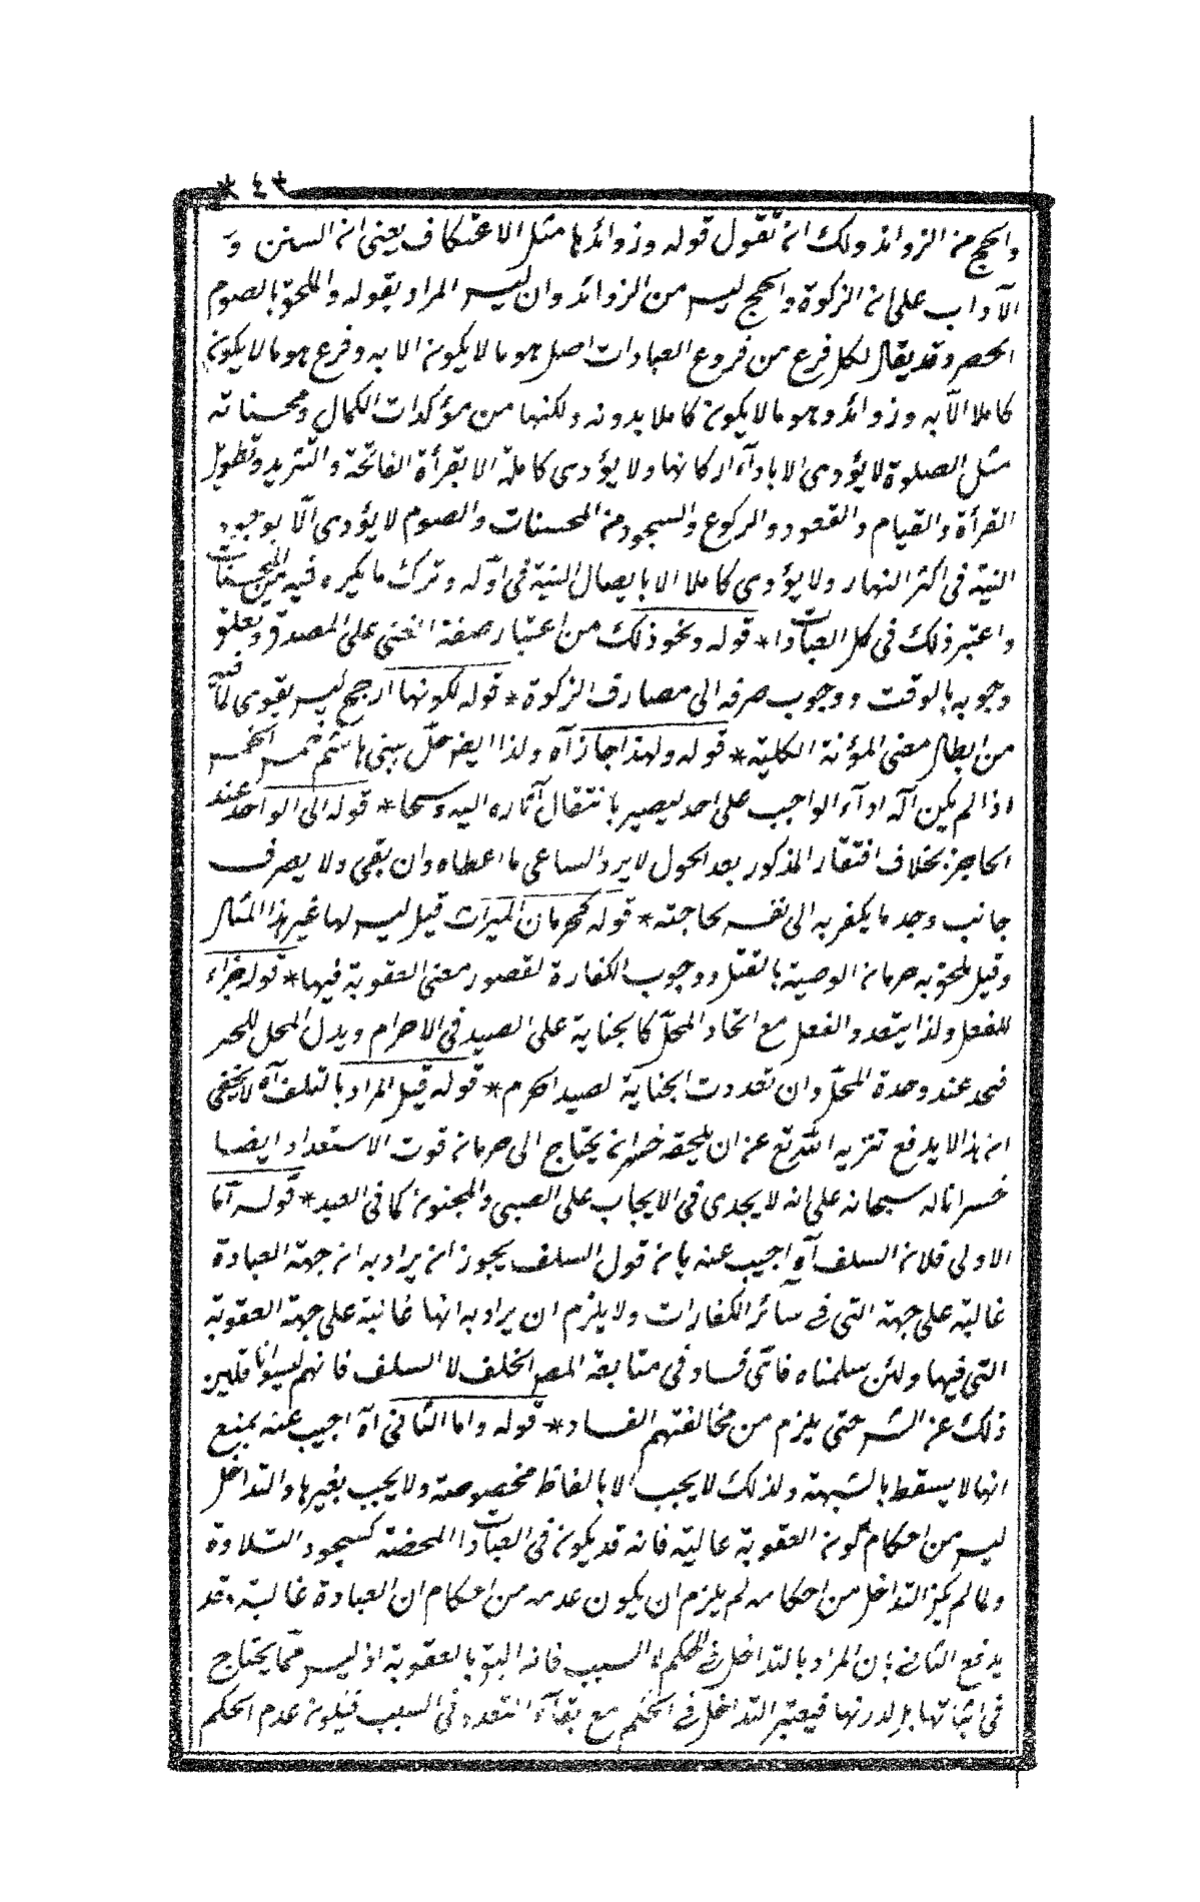 * ٤٣ *
والحج من الزوائد ولك ان تقول قوله وزوائدها مثل الاعتكاف يعنى ان السنن و
الآداب على ان الزكوة والحج ليس من الزوائد وان ليس المراد بقوله والملحق بالصوم
الحصر وقد يقال لكل فرع من فروع العبادات اصل هو ما لا يكون الا به وفرع هو ما لا يكون
كاملا الّا به وزوائد وهو ما لا يكون كاملا بدونه ولكنها من مؤكدات الكمال ومحسناته
مثل الصلوة لا يؤدى الا باداء اركانها ولا يؤدى كاملة الا بقرأة الفاتحة و وتطويل
القرأة والقيام والقعود والركوع والسجود من المحسنات والصوم لا يؤدى الّا بوجود
النية فى اكثر النهار ولا يؤدى كاملا الا بايصال النية فى اوله وترك ما يكره فيه من المحسنات
واعتبر ذلك فى كل العبادات * قوله ونحو ذلك من اعتبار صفة الغنى على المصدق وتعلق
وجوبه بالوقت ووجوب صرفه الى مصارف الزكوة * قوله لكونها ارجح ليس بقوى لما فيه
من ابطال معنى المؤنة الكلية * قوله ولهذا جاز آه ولذا ايضا حل لبنى هاشم خمس الخمس
اذا لم يكن آلة اداء الواجب على احد ليصير بانتقال آثاره اليه وسخا * قوله الى الواحد عند
الحاجز بخلاف افتقار المذكور بعد الحول لا يرد الساعى ما اعطاه وان بقى ولا يصرف
جانب وجد ما يكفر به الى نفسه لحاجته * قوله كحرمان الميراث قيل ليس لها غير هذا المثال
وقيل يلحق به حرمان الوصية بالقتل ووجوب الكفارة لقصور معنى العقوبة فيها * قوله جزاء
للفعل ولذا يتعدد الفعل مع اتحاد المحل كالجناية على الصيد فى الاحرام ويدل المحل للحر
فيحد عند وحدة المحل وان تعددت الجناية لصيد الحرم * قوله قيل المراد بالتلف آه لا يخفى
ان هذا لا يدفع تنزيه الله تع عن ان يلحقه خسران يحتاج الى حرمان قوت الاستعداد ايضا
خسرانا له سبحانه على انه لا يجدى فى الايجاب على الصبى والمجنون كما فى العبد * قوله اما
الاولى فلان السلف آه اجيب عنه بان قول السلف يجوز ان يراد به ان جهة العبادة
غالبة على جهة التى فى سائر الكفارات ولا يلزم ان يراد به انها غالبة على جهة العقوبة
التى فيها ولئن سلمناه فاىّ فساد فى متابعة المص الخلف لا السلف فانهم ليسوا قائلين
ذلك عن الشرحتى يلزم من مخالفتهم الفساد * قوله واما الثانى آه اجيب عنه بمنع
انها لا يسقط بالشبهة ولذلك لا يجب الا بالفاظ مخصوصة ولا يجب بغيرها والتداخل
ليس من احكام كون العقوبة غالبة فانه قد يكون فى العبادات المحضة كسجود التلاوة
ولما لم يكن التداخل من احكامه لم يلزم ان يكون عدمه من احكام ان العبادة غالبة وقد
يدفع الثانى بان المراد بالتداخل فى الحكم لا السبب فانه اليق بالعقوبة اذ ليس مما يحتاج
فى اثباتها بل لدرئها فيعتبر التداخل فى الحكم مع بقاء التعدد فى السبب فيكون عدم الحكم